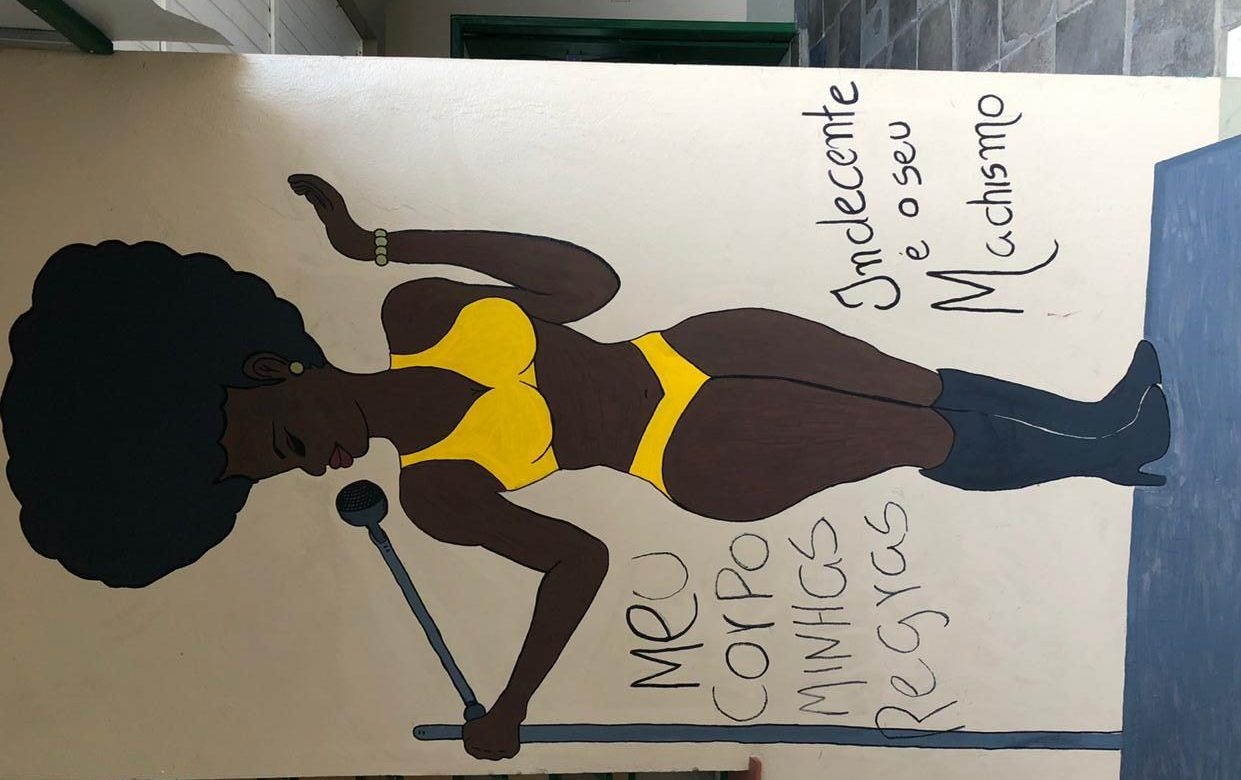 MeU
COrPO
MINHas
Regras
Indecente
é o seu
Machismo